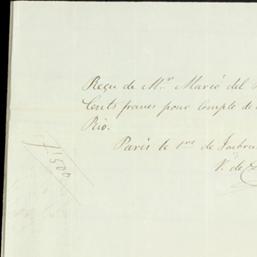 Reçu de Mr. Marcó del
Cents francs pour compte de
Rio.
Paris le 1er de
V. de
f 1500